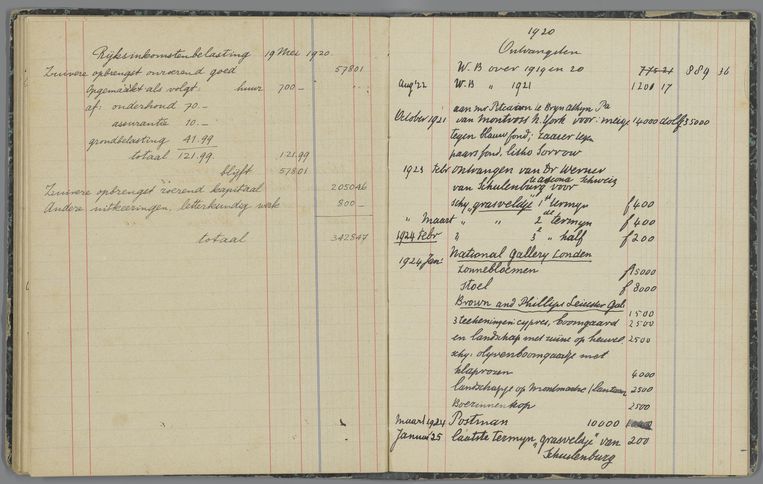 Rijksinkomstenbelasting 19 Mei 1920.
Zuivere opbrengst onroerend goed 57801
Opgemaakt als volgt: huur 700 –
af: onderhoud 70. –
assurantie 10. –
grondbelasting 41.99
totaal 121.99. 121.99
blijft 57801
Zuivere opbrengst roerend kapitaal 205046
Andere uitkeeringen, letterkundig werk 800 –
totaal 342847
1920
Ontvangsten
W. B over 1919 en 20 775 21 889 36
Aug '22 W. B „ 1921 1201 17
October 1921 aan mr Pitcairn te Bryn Athyn Pa
van Montross N. York voor: meisje 14000 doll f 35000
tegen blauw fond;
paars fond, litho Sorrow
1923 Febr ontvangen van Dr Werner
van Schulenburg voor
schy „grasveldje 1ste termyn f 400
„ Maart „ „ 2de termyn f 400
1924 Febr „ 3e „ half f 200
1924 Jan: National Gallery Londen
Zonnebloemen f 15000
Stoel f 8000
Brown and Phillips Leicester Gal:
1500
3 teekeningen: cypres, boomgaard 2500
en landschap met ruine op heuvel 2500
schy: olyvenboomgaardje met
klaprozen 4000
landschapje op Montmartre / lantaarn 2500
Boerinnenkop 2500
Maart 1924 Postman 10000
Januari '25 laatste termyn „grasveldje" van 200
Schulenburg